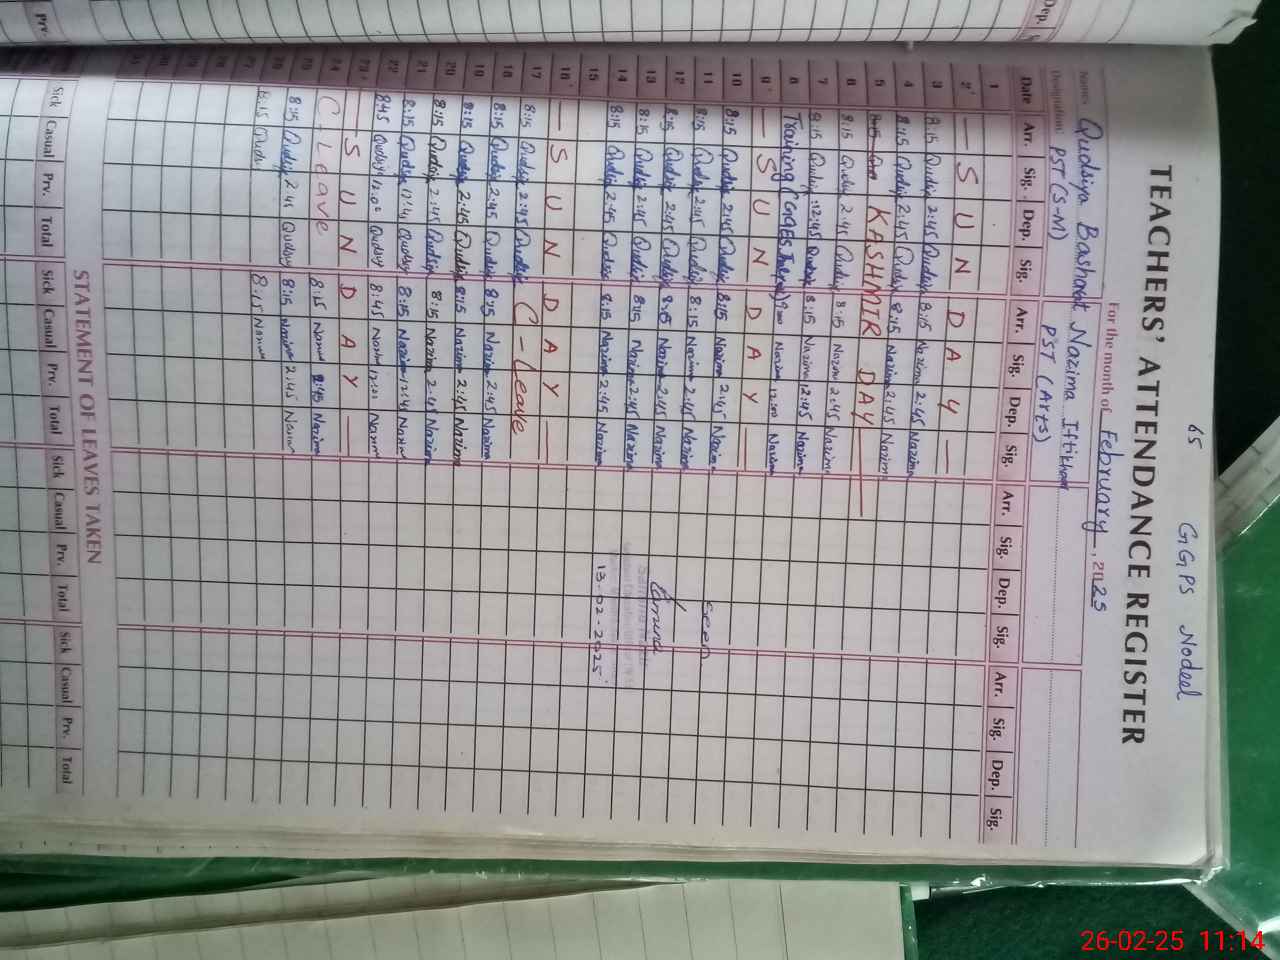 65 GGPS Nodeel
TEACHERS' ATTENDANCE REGISTER
For the month of February, 2025
Name: Qudsiya Basharat Nazima Iftikhar
Designation: PST (S-M) PST (Arts)
Date Arr. Sig. Dep. Sig. Arr. Sig. Dep. Sig. Arr. Sig. Dep. Sig. Arr. Sig. Dep. Sig.
1
2 — S U N D A Y —
3 8:15 Qudsiya 2:45 Qudsiya 8:15 Nazima 2:45 Nazima
4 8:15 Qudsiya 2:45 Qudsiya 8:15 Nazima 2:45 Nazima
5 8:15 KASHMIR DAY
6 8:15 Qudsiya 2:45 Qudsiya 8:15 Nazima 2:45 Nazima
7 8:15 Qudsiya 12:45 Qudsiya 8:15 Nazima 12:45 Nazima
8 Training (GGES 9:00 Nazima 12:00 Nazima
9 — S U N D A Y —
10 8:15 Qudsiya 2:45 Qudsiya 8:15 Nazima 2:45 Nazima
11 8:15 Qudsiya 2:45 Qudsiya 8:15 Nazima 2:45 Nazima
12 8:15 Qudsiya 2:45 Qudsiya 8:15 Nazima 2:45 Nazima
13 8:15 Qudsiya 2:45 Qudsiya 8:15 Nazima 2:45 Nazima
14 8:15 Qudsiya 2:45 Qudsiya 8:15 Nazima 2:45 Nazima
15 13-02-2025
16 — S U N D A Y —
17 8:15 Qudsiya 2:45 Qudsiya C-Leave
18 8:15 Qudsiya 2:45 Qudsiya 8:15 Nazima 2:45 Nazima
19 8:15 Qudsiya 2:45 Qudsiya 8:15 Nazima 2:45 Nazima
20 8:15 Qudsiya 2:45 Qudsiya 8:15 Nazima 2:45 Nazima
21 8:15 Qudsiya 12:45 Qudsiya 8:15 Nazima 12:45 Nazima
22 8:45 Qudsiya 12:00 Qudsiya 8:45 Nazima Nazima
23 — S U N D A Y —
24 C-Leave 8:15 Nazima 2:45 Nazima
25 8:15 Qudsiya 2:45 Qudsiya 8:15 Nazima 2:45 Nazima
26 8:15 Qudsiya 8:15 Nazima
27
28
29
30
31
STATEMENT OF LEAVES TAKEN
Sick Casual Prv. Total Sick Casual Prv. Total Sick Casual Prv. Total Sick Casual Prv. Total
26-02-25 11:14